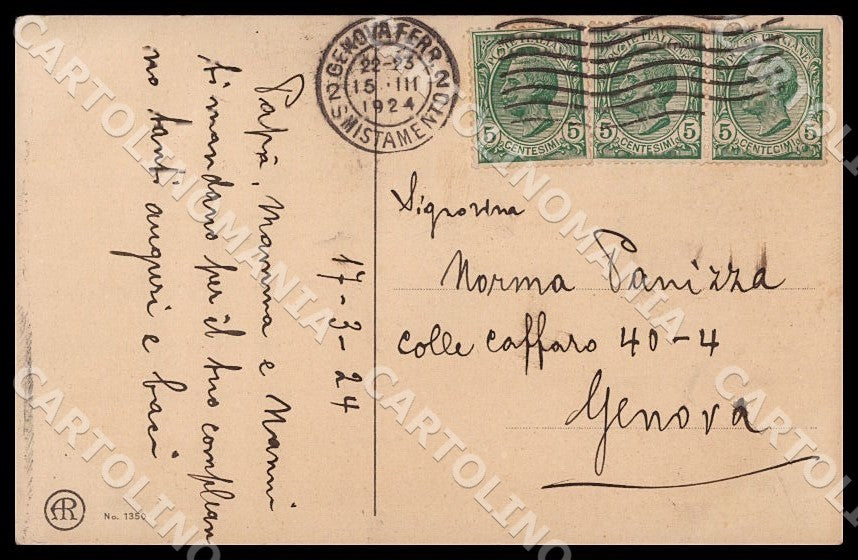 GENOVA FERR.
22-23
15 · III
1924
2 SMISTAMENTO 2
POSTE ITALIANE
5 CENTESIMI 5
5 CENTESIMI 5
5 CENTESIMI 5
Papà, Mamma e Nanni
ti mandano per il tuo complean
no tanti auguri e baci
17-3-24
Signorina
Norma Panizza
colle caffaro 40-4
Genova
AR
No. 1350
CARTOLINOMANIA